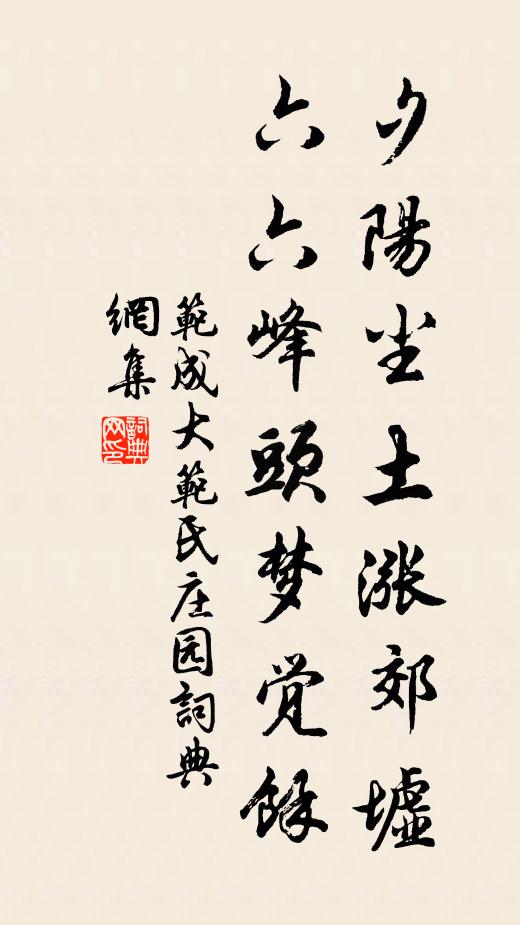 夕陽尘土漲郊墟
六六峰頭梦觉餘
範成大範氏庄园詞典
網集
詞典
网印